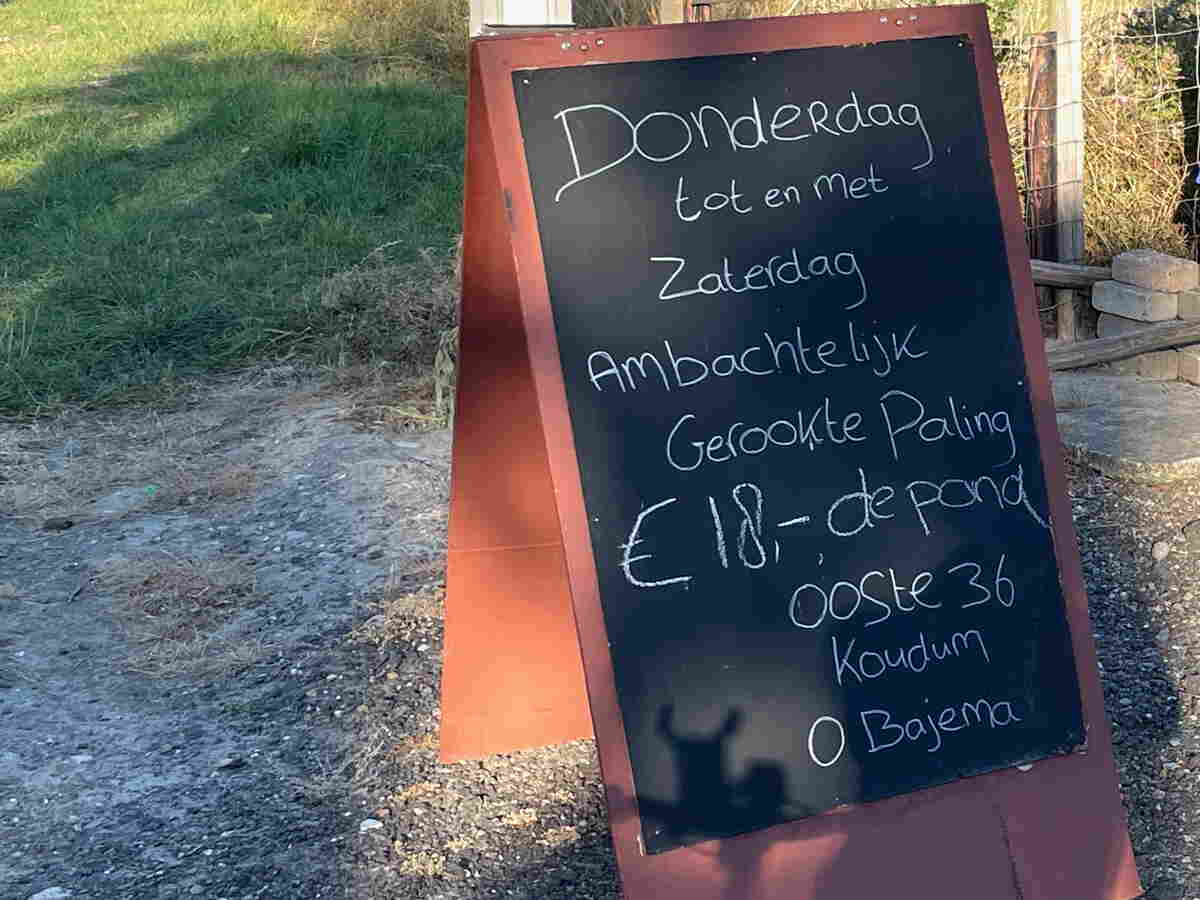 Donderdag
tot en met
Zaterdag
Ambachtelijk
Gerookte Paling
€ 18,- de pond
ooste 36
Koudum
O Bajema